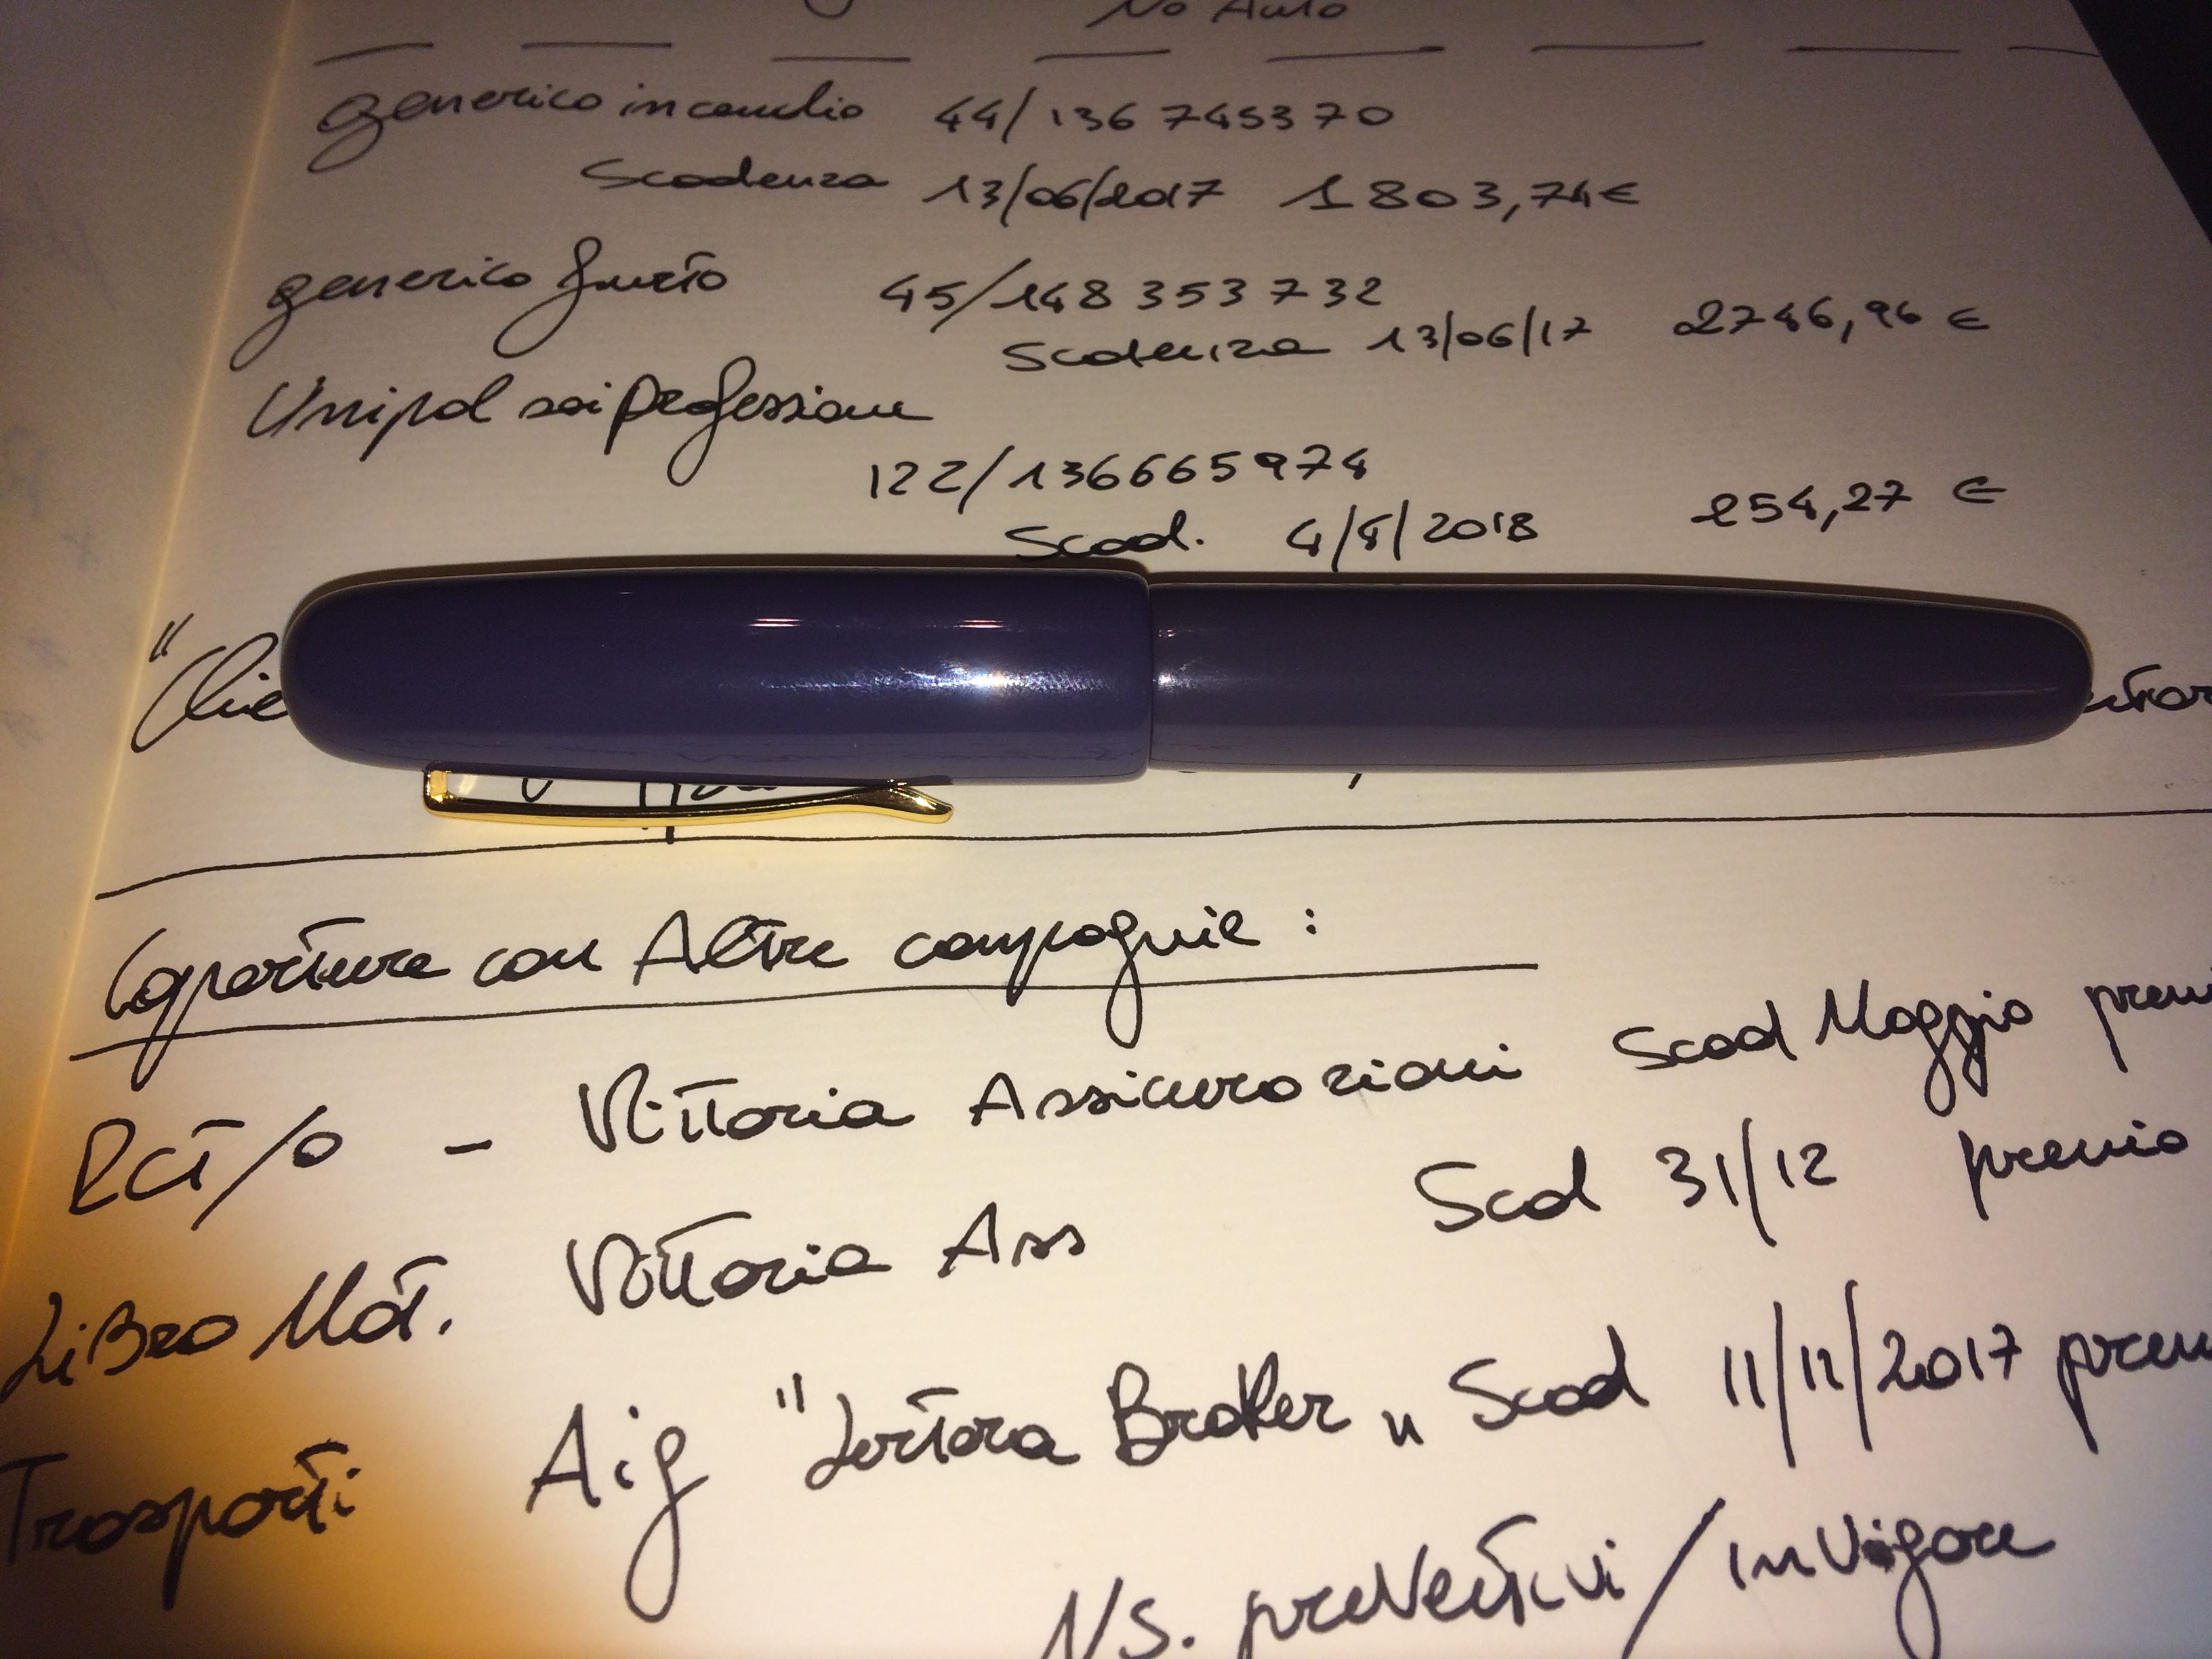 No Auto
generico incendio 44/136745370
Scadenza 13/06/2017 1803,74€
generico furto 45/148353732
Scadenza 13/06/17 2746,96 €
Unipol sai professioni
122/136665974
Scad. 4/4/2018 254,27 €
"Clie
Coperture con Altre compagnie :
RCT/O - Vittoria Assicurazioni Scad Maggio premi
Libro Mat. Vittoria Ass Scad 31/12 premio
Trasporti Aig "Lertora Broker" Scad 11/11/2017 prem
NS. preventivi/in vigore